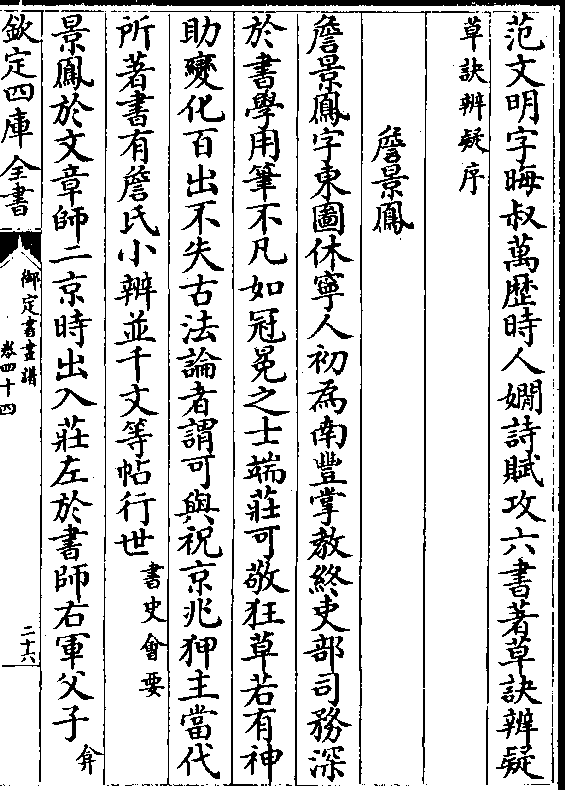 范文明字晦叔萬歴時人嫻詩賦攻六書著草訣辨疑
草訣辨疑序
詹景鳳
詹景鳳字東圖休寧人初為南豐掌教終吏部司務深
於書學用筆不凡如冠冕之士端莊可敬狂草若有神
助變化百出不失古法論者謂可與祝京兆狎主當代
所著書有詹氏小辨並千文等帖行世書史會要
景鳳於文章師二京時出入莊左於書師右軍父子弇
欽定四庫全書
御定書畫譜
卷四十四
二十六